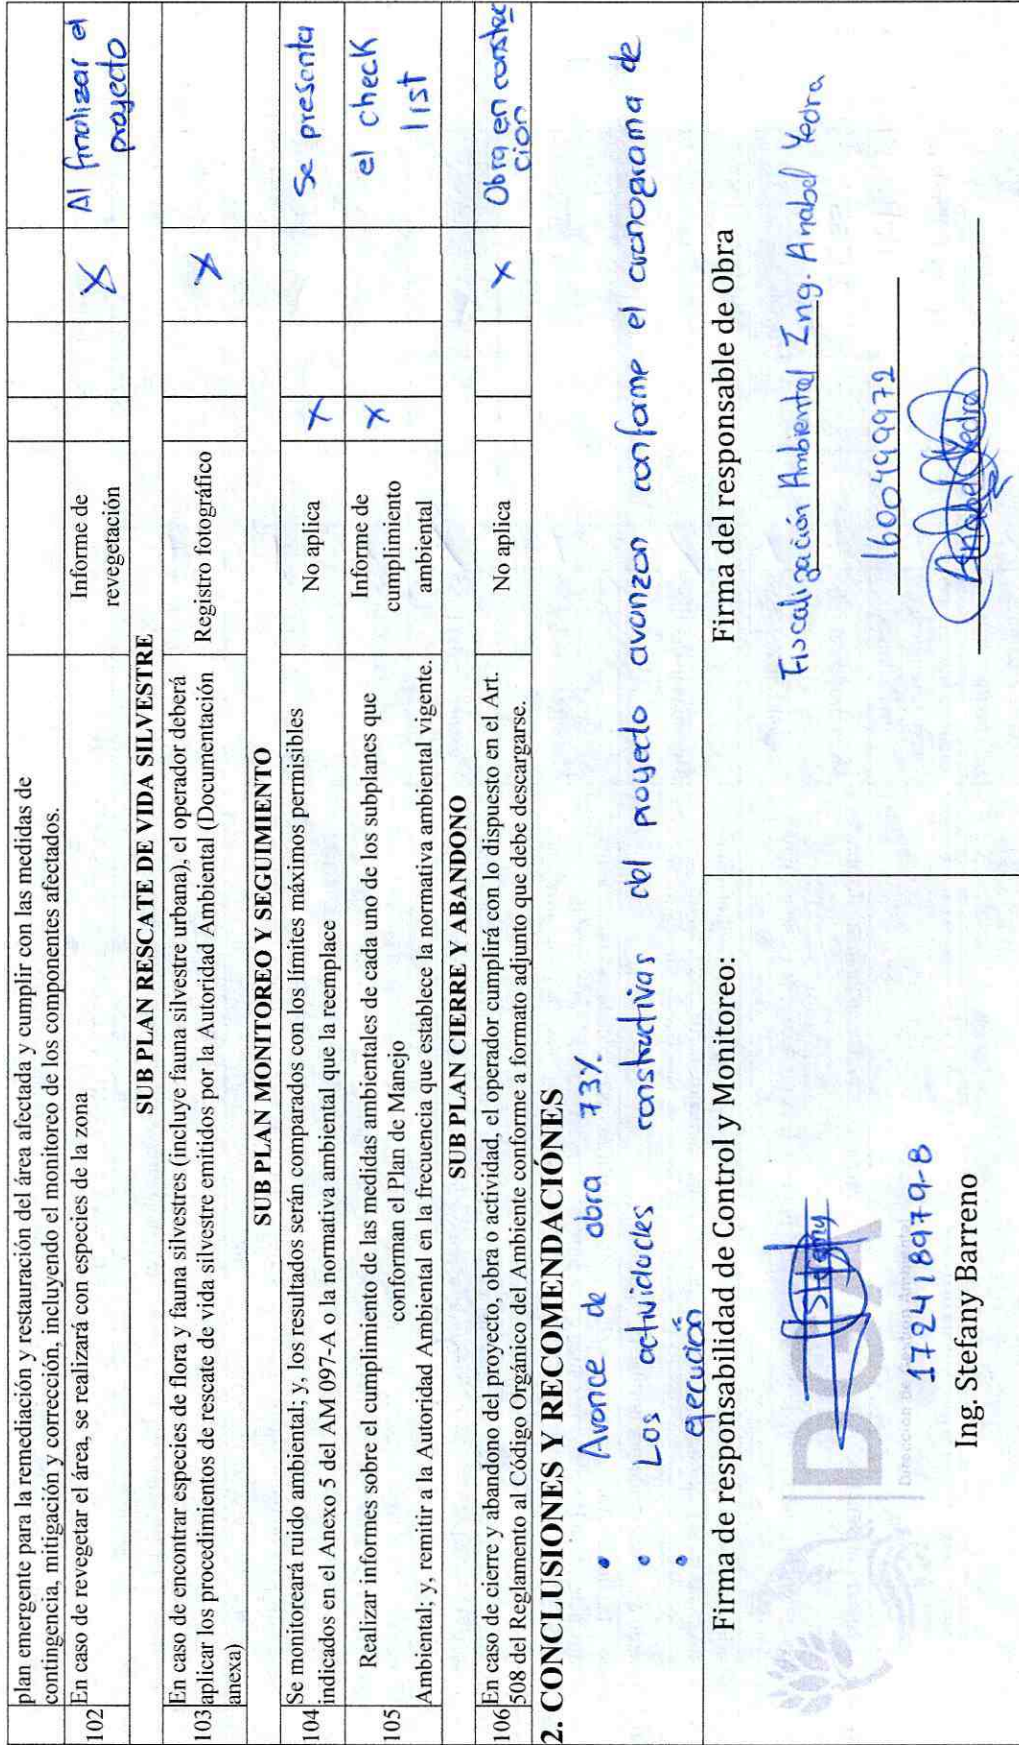 plan emergente para la remediación y restauración del área afectada y cumplir con las medidas de
contingencia, mitigación y corrección, incluyendo el monitoreo de los componentes afectados.
102 En caso de revegetar el área, se realizará con especies de la zona
Informe de
revegetación
X
Al finalizar el
proyecto
SUB PLAN RESCATE DE VIDA SILVESTRE
103 En caso de encontrar especies de flora y fauna silvestres (incluye fauna silvestre urbana), el operador deberá
aplicar los procedimientos de rescate de vida silvestre emitidos por la Autoridad Ambiental (Documentación
anexa)
Registro fotográfico
X
SUB PLAN MONITOREO Y SEGUIMIENTO
104 Se monitoreará ruido ambiental; y, los resultados serán comparados con los límites máximos permisibles
indicados en el Anexo 5 del AM 097-A o la normativa ambiental que la reemplace
No aplica
X
Se presenta
105 Realizar informes sobre el cumplimiento de las medidas ambientales de cada uno de los subplanes que
conforman el Plan de Manejo
Ambiental; y, remitir a la Autoridad Ambiental en la frecuencia que establece la normativa ambiental vigente.
Informe de
cumplimiento
ambiental
X
el check
list
SUB PLAN CIERRE Y ABANDONO
106 En caso de cierre y abandono del proyecto, obra o actividad, el operador cumplirá con lo dispuesto en el Art.
508 del Reglamento al Código Orgánico del Ambiente conforme a formato adjunto que debe descargarse.
No aplica
x
Obra en construc
ción
2. CONCLUSIONES Y RECOMENDACIÓNES
• Avance de obra 73%
• Los actividades constructivas del proyecto avanzan conforme el cronograma de
• ejecución
Firma de responsabilidad de Control y Monitoreo:
Stefany
DGA
Dirección de Gestión Ambiental
172418979-8
Ing. Stefany Barreno
Firma del responsable de Obra
Fiscalización Ambiental Ing. Anabel Yedra
1600499972
Anabel Yedra